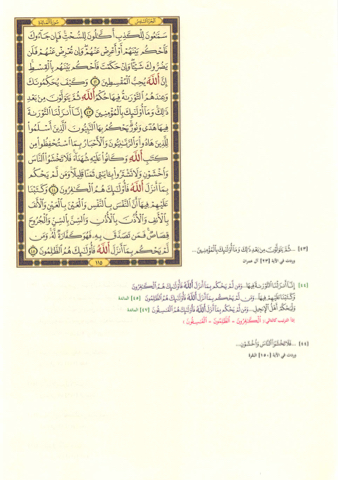 سَمَّٰعُونَ لِلْكَذِبِ أَكَّٰلُونَ لِلسُّحْتِ فَإِن جَآءُوكَ
فَٱحْكُم بَيْنَهُمْ أَوْ أَعْرِضْ عَنْهُمْ وَإِن تُعْرِضْ عَنْهُمْ فَلَن
يَضُرُّوكَ شَيْـًٔا وَإِنْ حَكَمْتَ فَٱحْكُم بَيْنَهُم بِٱلْقِسْطِ
إِنَّ ٱللَّهَ يُحِبُّ ٱلْمُقْسِطِينَ ٤٢ وَكَيْفَ يُحَكِّمُونَكَ
وَعِندَهُمُ ٱلتَّوْرَىٰةُ فِيهَا حُكْمُ ٱللَّهِ ثُمَّ يَتَوَلَّوْنَ مِنۢ بَعْدِ
ذَٰلِكَ وَمَآ أُو۟لَٰٓئِكَ بِٱلْمُؤْمِنِينَ ٤٣ إِنَّآ أَنزَلْنَا ٱلتَّوْرَىٰةَ
فِيهَا هُدًى وَنُورٌ يَحْكُمُ بِهَا ٱلنَّبِيُّونَ ٱلَّذِينَ أَسْلَمُوا۟
لِلَّذِينَ هَادُوا۟ وَٱلرَّبَّٰنِيُّونَ وَٱلْأَحْبَارُ بِمَا ٱسْتُحْفِظُوا۟ مِن
كِتَٰبِ ٱللَّهِ وَكَانُوا۟ عَلَيْهِ شُهَدَآءَ فَلَا تَخْشَوُا۟ ٱلنَّاسَ
وَٱخْشَوْنِ وَلَا تَشْتَرُوا۟ بِـَٔايَٰتِى ثَمَنًا قَلِيلًا وَمَن لَّمْ يَحْكُم
بِمَآ أَنزَلَ ٱللَّهُ فَأُو۟لَٰٓئِكَ هُمُ ٱلْكَٰفِرُونَ ٤٤ وَكَتَبْنَا
عَلَيْهِمْ فِيهَآ أَنَّ ٱلنَّفْسَ بِٱلنَّفْسِ وَٱلْعَيْنَ بِٱلْعَيْنِ وَٱلْأَنفَ
بِٱلْأَنفِ وَٱلْأُذُنَ بِٱلْأُذُنِ وَٱلسِّنَّ بِٱلسِّنِّ وَٱلْجُرُوحَ
قِصَاصٌ فَمَن تَصَدَّقَ بِهِۦ فَهُوَ كَفَّارَةٌ لَّهُۥ وَمَن
لَّمْ يَحْكُم بِمَآ أَنزَلَ ٱللَّهُ فَأُو۟لَٰٓئِكَ هُمُ ٱلظَّٰلِمُونَ ٤٥
١١٥
[٤٣] ...ثُمَّ يَتَوَلَّوْنَ مِنۢ بَعْدِ ذَٰلِكَ وَمَآ أُو۟لَٰٓئِكَ بِٱلْمُؤْمِنِينَ...
وردت في الآية [٢٣] آل عمران
[٤٤] إِنَّآ أَنزَلْنَا ٱلتَّوْرَىٰةَ فِيهَا... وَمَن لَّمْ يَحْكُم بِمَآ أَنزَلَ ٱللَّهُ فَأُو۟لَٰٓئِكَ هُمُ ٱلْكَٰفِرُونَ
وَكَتَبْنَا عَلَيْهِمْ فِيهَآ... وَمَن لَّمْ يَحْكُم بِمَآ أَنزَلَ ٱللَّهُ فَأُو۟لَٰٓئِكَ هُمُ ٱلظَّٰلِمُونَ [٤٥] المائدة
وَلْيَحْكُمْ أَهْلُ ٱلْإِنجِيلِ... وَمَن لَّمْ يَحْكُم بِمَآ أَنزَلَ ٱللَّهُ فَأُو۟لَٰٓئِكَ هُمُ ٱلْفَٰسِقُونَ [٤٧] المائدة
( ٱلْكَٰفِرُونَ - ٱلظَّٰلِمُونَ - ٱلْفَٰسِقُونَ )
[٤٤] ...فَلَا تَخْشَوُا۟ ٱلنَّاسَ وَٱخْشَوْنِ...
وردت في الآية [١٥٠] البقرة